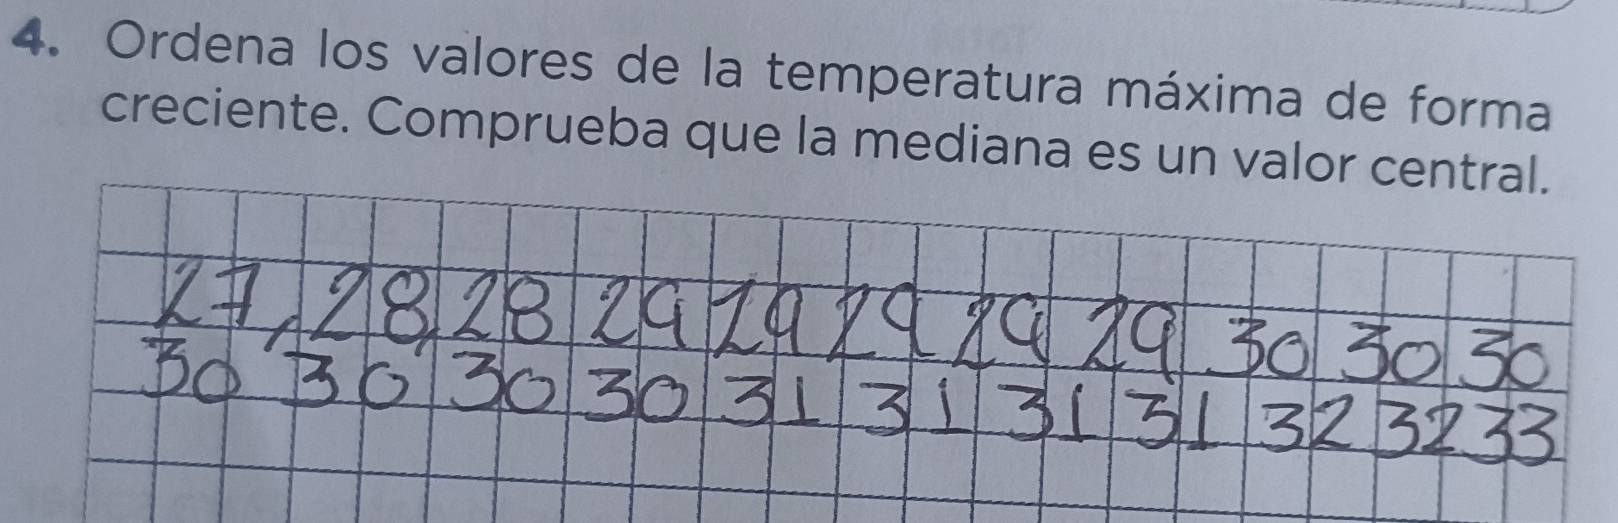 4. Ordena los valores de la temperatura máxima de forma
creciente. Comprueba que la mediana es un valor central.
27, 28, 28 29 29 29 29 29 30 30 30
30 30 30 30 31 31 31 31 32 32 33